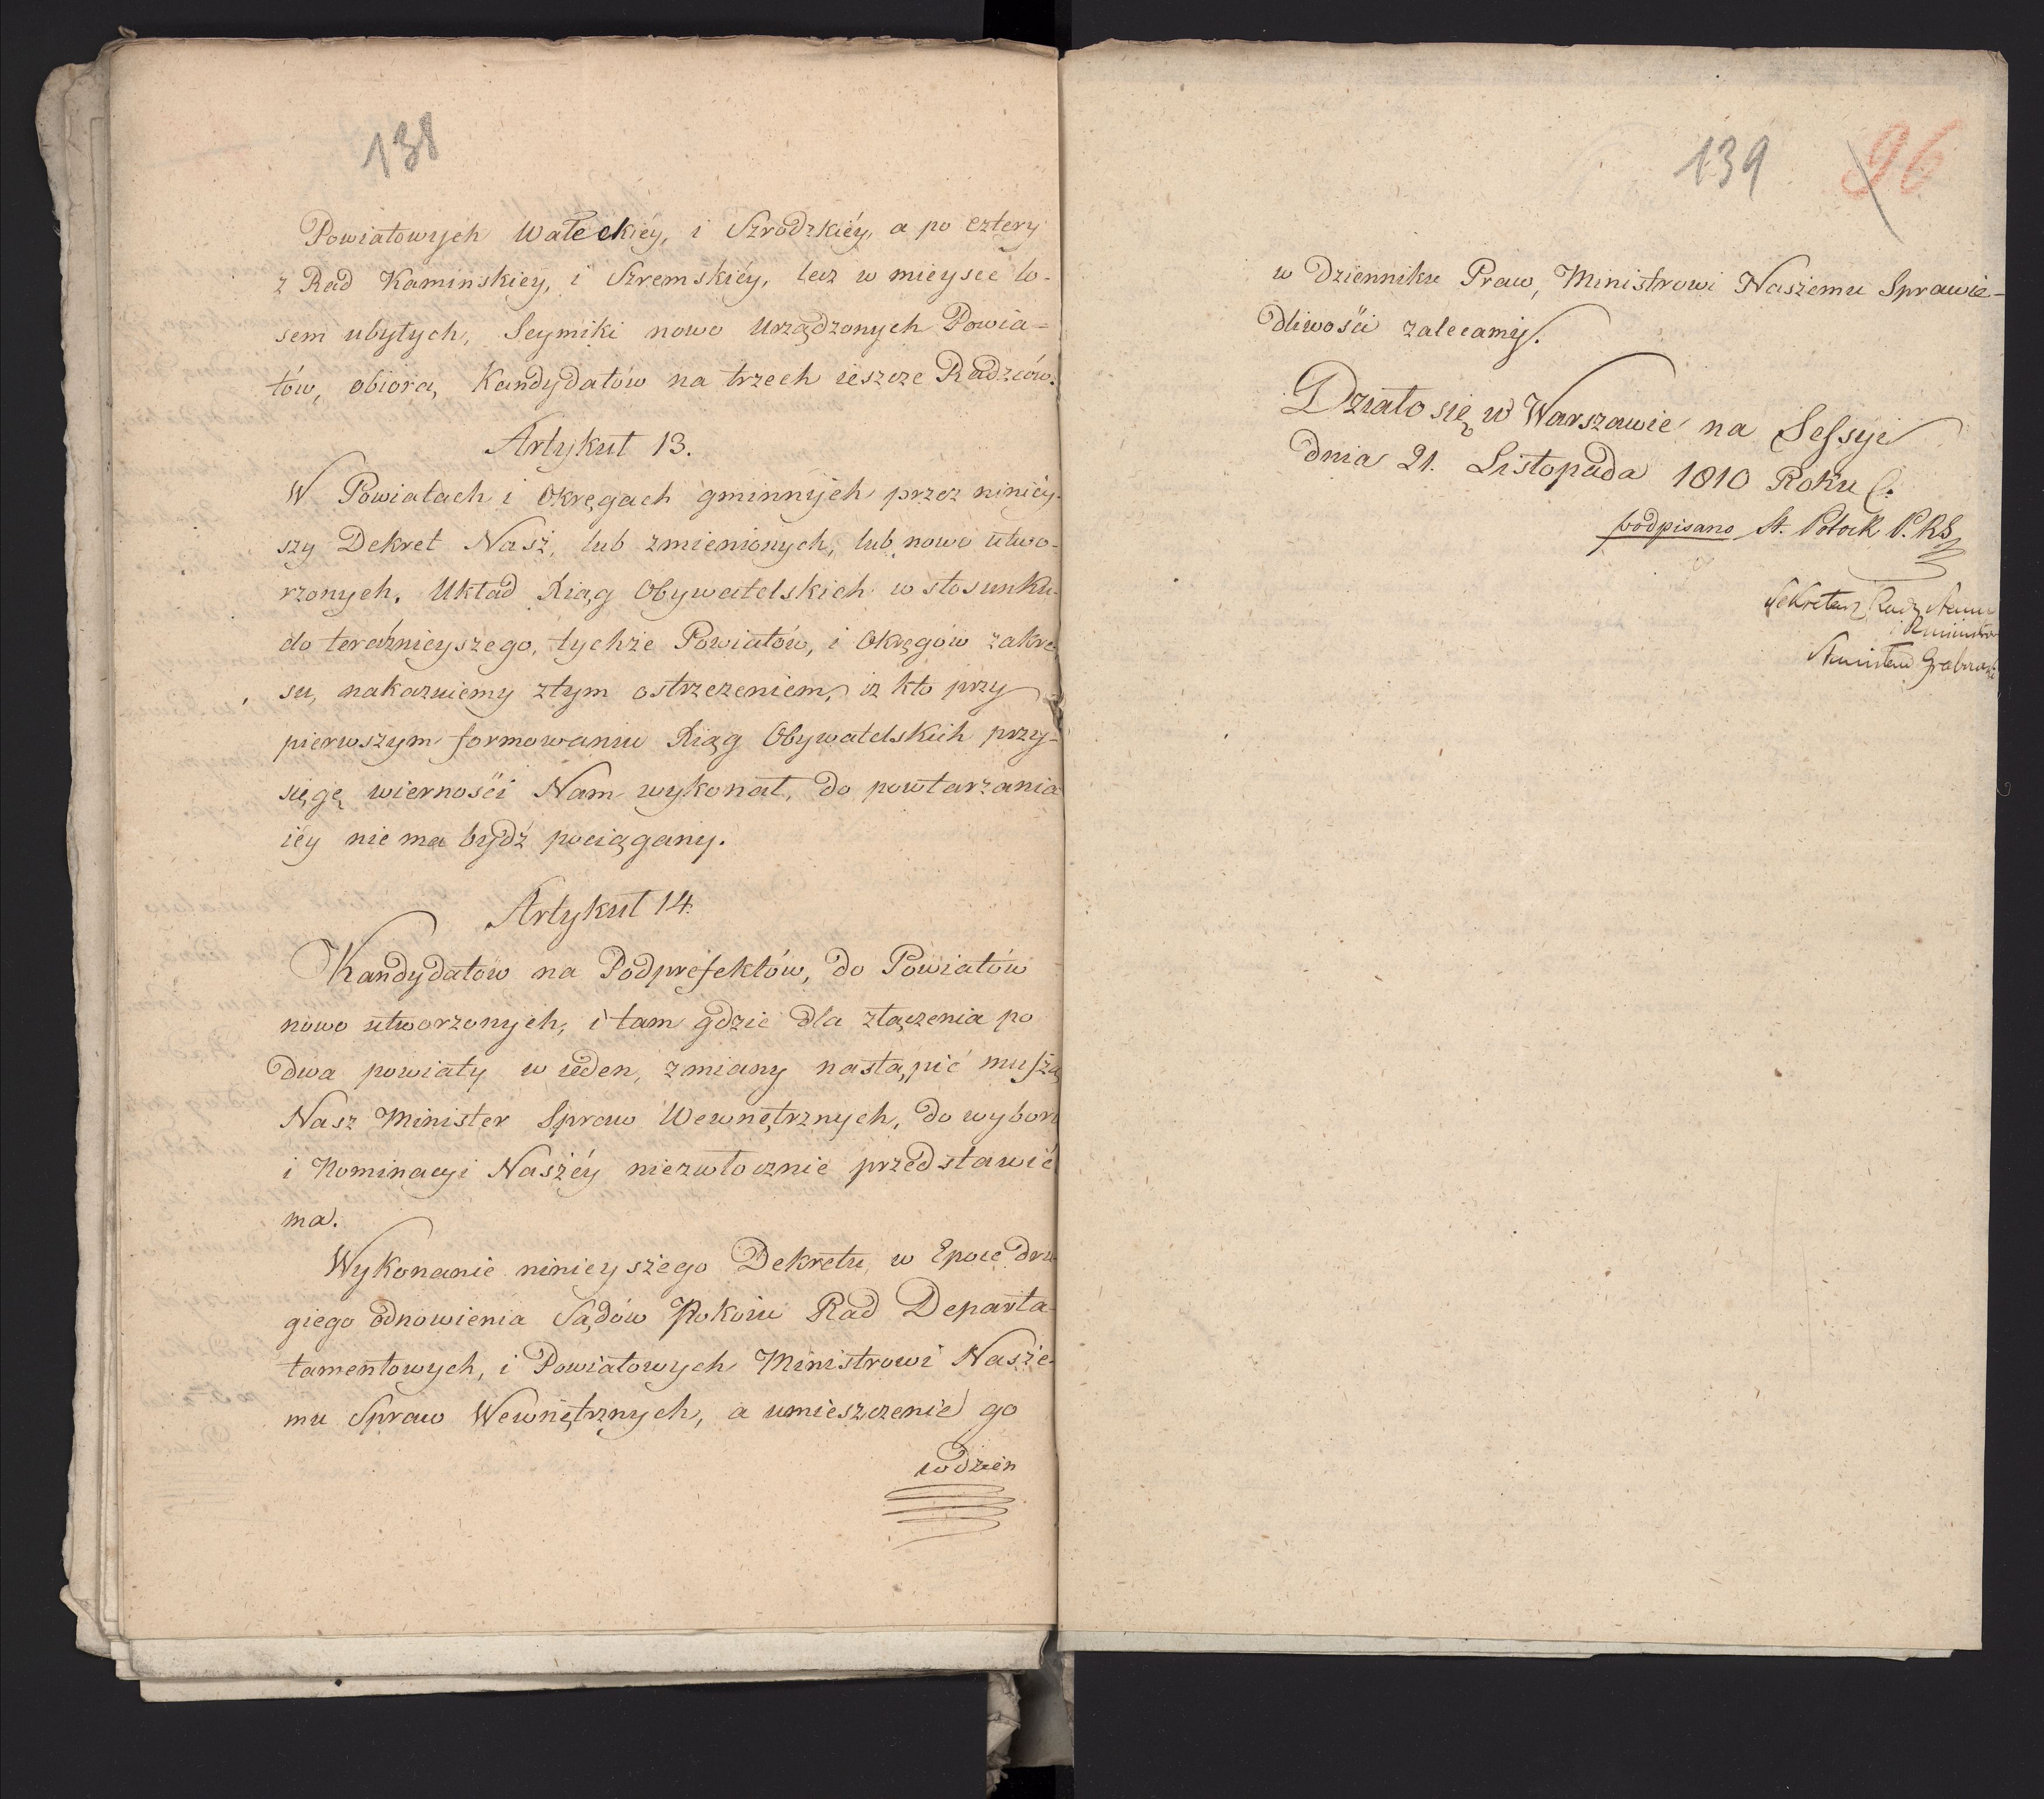 138
Powiatowych Wałeckiéy, i Szrodzkiéy, a po cztery
z Rad Kaminskiey, i Szremskiéy, lecz w mieysce lo-
sem ubytych, Seymiki nowo Urządzonych Powia-
tów, obiorą, Kandydatów na trzech ieszcze Radzców.
Artykuł 13.
W Powiatach i Okręgach gminnych przez ninièy-
szy Dekret Nasz, lub zmienionych, lub nowo utwo-
rzonych, Układ Xiąg Obywatelskich w stosunku
do teraźnieyszego, tychże Powiatów, i Okręgów zakre-
su, nakazuiemy z tym ostrzeżeniem, iż kto przy
pierwszym formowaniu Xiąg Obywatelskich przy-
sięgę wierności Nam wykonał, do powtarzania
iéy nie ma bydź pociągany.
Artykuł 14.
Kandydatów na Podprefektów, do Powiatów
nowo utworzonych, i tam gdzie dla złączenia po
dwa powiaty w ieden, zmiany nastąpić muszą
Nasz Minister Spraw Wewnętrznych, do wyboru
i Nominacyi Naszéy niezwłocznie przedstawić
ma.
Wykonanie ninieyszego Dekretu, w Epoce dru-
giego odnowienia Sądów Pokoiu Rad Departa-
tamentowych, i Powiatowych Ministrowi Nasze-
mu Spraw Wewnętrznych, a umieszczenie go
wdzien
139 96
w Dzienniku Praw, Ministrowi Naszemu Sprawie-
dliwości zalecamy.
Działo się w Warszawie na Sessyi
dnia 21. Listopada 1810 Roku
podpisano St. Potocki P. RS
Sekretarz Rady Stanu
i Ministrów
Stanisław Grabowski